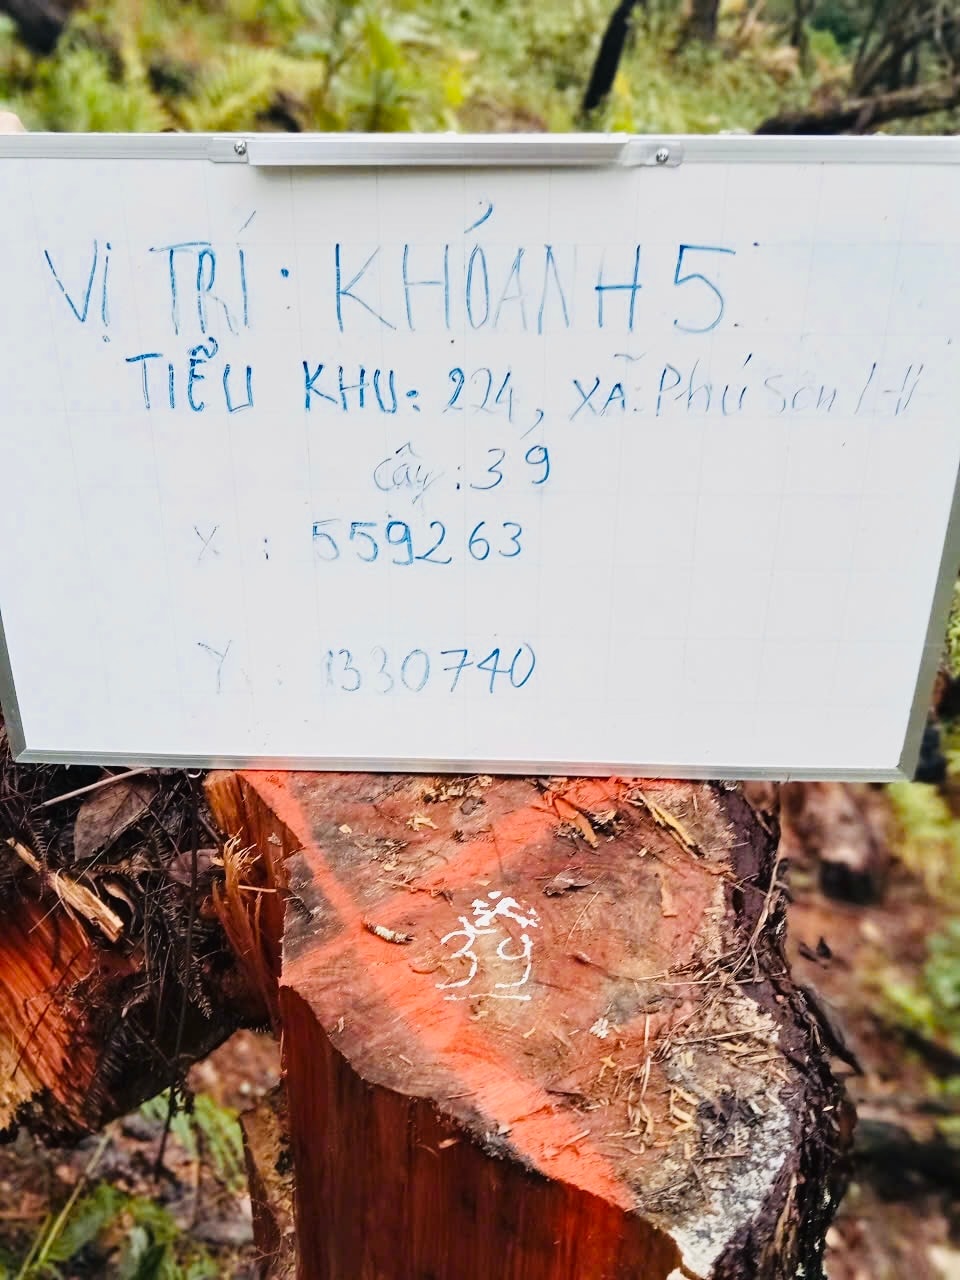 VỊ TRÍ: KHỎANH 5
TIỂU KHU: 224, XÃ: Phú Sơn LH
Cây: 39
X : 559263
Y : 1330740
39